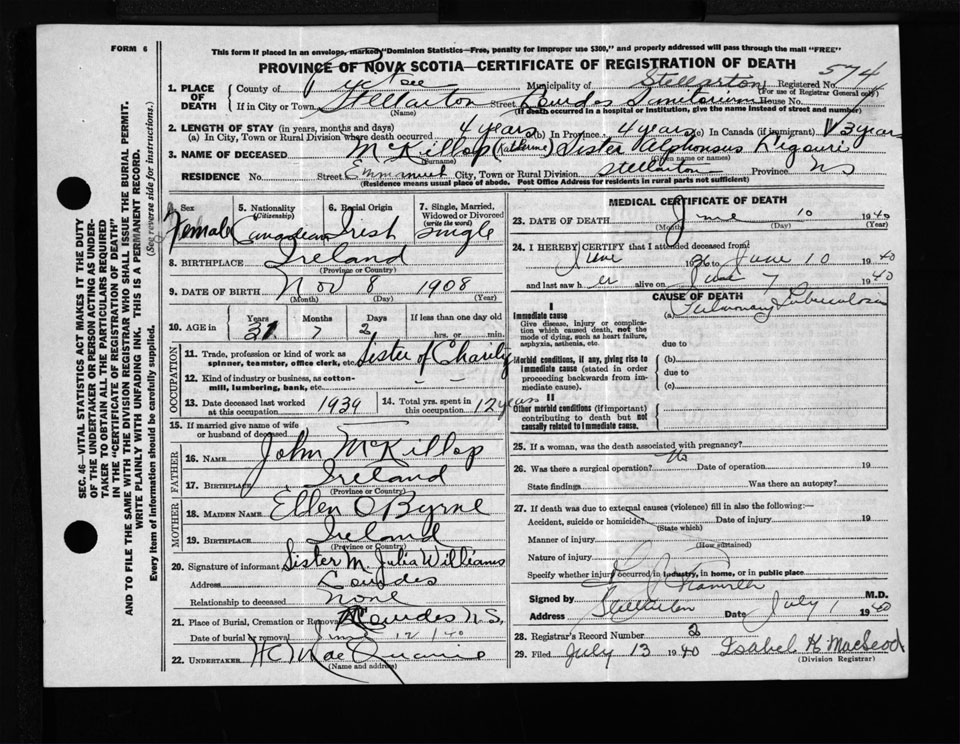 FORM 6
This form if placed in an envelope, marked "Dominion Statistics—Free, penalty for improper use $300," and properly addressed will pass through the mail "FREE"
PROVINCE OF NOVA SCOTIA—CERTIFICATE OF REGISTRATION OF DEATH
574
1. PLACE OF DEATH
County of Pictou Municipality of Stellarton Registered No.
(For use of Registrar General only)
If in City or Town Stellarton Street Lourdes Sanitorium House No.
(Name) (If death occurred in a hospital or institution, give the name instead of street and number)
2. LENGTH OF STAY (in years, months and days)
(a) In City, Town or Rural Division where death occurred 4 years (b) In Province 4 years (c) In Canada (if immigrant) 13 years
3. NAME OF DECEASED McKillop (Katherine) Sister Alphonsus Ligouri
(Surname) (Given name or names)
RESIDENCE No. Street City, Town or Rural Division Stellarton Province NS
(Residence means usual place of abode. Post Office Address for residents in rural parts not sufficient)
Sex Female
5. Nationality (Citizenship) Canadian
6. Racial Origin Irish
7. Single, Married, Widowed or Divorced (write the word) Single
8. BIRTHPLACE Ireland
(Province or Country)
9. DATE OF BIRTH Nov 8 1908
(Month) (Day) (Year)
10. AGE in Years Months Days If less than one day old
31 7 2 hrs. or min.
OCCUPATION
11. Trade, profession or kind of work as spinner, teamster, office clerk, etc. Sister of Charity
12. Kind of industry or business, as cotton-mill, lumbering, bank, etc. – –
13. Date deceased last worked at this occupation 1939
14. Total yrs. spent in this occupation 12 years
15. If married give name of wife or husband of deceased
FATHER
16. Name John McKillop
17. Birthplace Ireland
(Province or Country)
MOTHER
18. MAIDEN NAME Ellen O'Byrne
19. BIRTHPLACE Ireland
(Province or Country)
20. Signature of informant Sister M. Julia Williams
Address Lourdes
Relationship to deceased None
21. Place of Burial, Cremation or Removal Lourdes N.S.
Date of burial or removal June 12/40
22. UNDERTAKER
(Name and address)
MEDICAL CERTIFICATE OF DEATH
23. DATE OF DEATH June 10 1940
(Month) (Day) (Year)
24. I HEREBY CERTIFY that I attended deceased from
June 1936 to June 10 1940
and last saw her alive on June 7 1940
CAUSE OF DEATH
I
Immediate cause
Give disease, injury or complication which caused death, not the mode of dying, such as heart failure, asphyxia, asthenia, etc.
(a) Pulmonary Tuberculosis
due to
Morbid conditions, if any, giving rise to immediate cause (stated in order proceeding backwards from immediate cause).
(b)
due to
(c)
II
Other morbid conditions (if important) contributing to death but not causally related to immediate cause.
25. If a woman, was the death associated with pregnancy? No
26. Was there a surgical operation? Date of operation 19
State findings Was there an autopsy?
27. If death was due to external causes (violence) fill in also the following:—
Accident, suicide or homicide? Date of injury 19
(State which)
Manner of injury
(How sustained)
Nature of injury
Specify whether injury occurred in industry, in home, or in public place
Signed by M.D.
Address Stellarton Date July 1 1940
28. Registrar's Record Number 2
29. Filed July 13 1940 Isabel K MacLeod
(Division Registrar)
SEC. 46—VITAL STATISTICS ACT MAKES IT THE DUTY
OF THE UNDERTAKER OR PERSON ACTING AS UNDER-
TAKER TO OBTAIN ALL THE PARTICULARS REQUIRED
IN THE "CERTIFICATE OF REGISTRATION OF DEATH"
AND TO FILE THE SAME WITH THE DIVISION REGISTRAR WHO SHALL ISSUE THE BURIAL PERMIT.
WRITE PLAINLY WITH UNFADING INK. THIS IS A PERMANENT RECORD.
Every item of information should be carefully supplied. (See reverse side for instructions.)